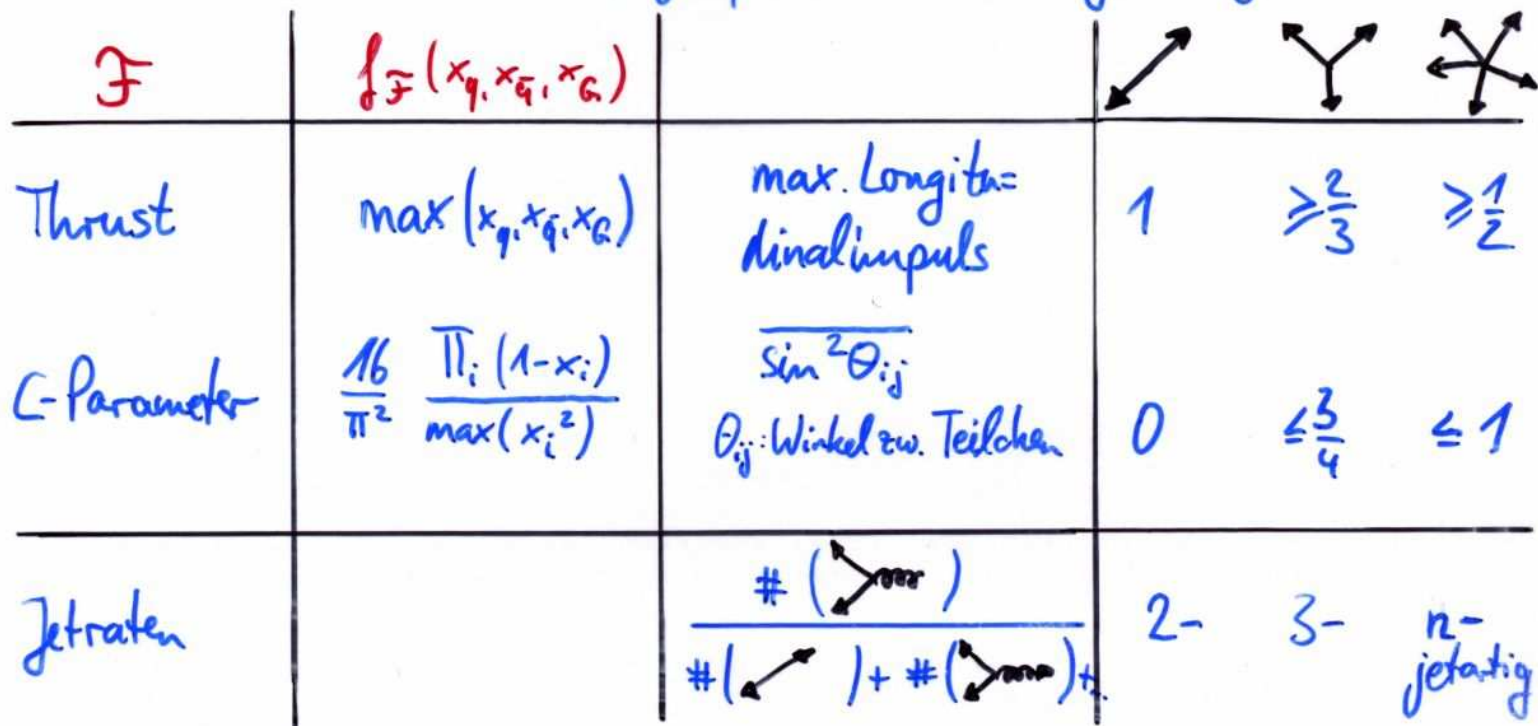 F f_F (x_q, x_q̄, x_G)
Thrust max (x_q, x_q̄, x_G) max. Longitu= 1 ≥ 2/3 ≥ 1/2
dinalimpuls
C-Parameter 16/π² Π_i (1-x_i) / max(x_i²) sin²Θ_ij 0 ≤ 3/4 ≤ 1
Θ_ij: Winkel zw. Teilchen
Jetraten # ( ) 2- 3- n-
#( ) + #( )+.. jetartig